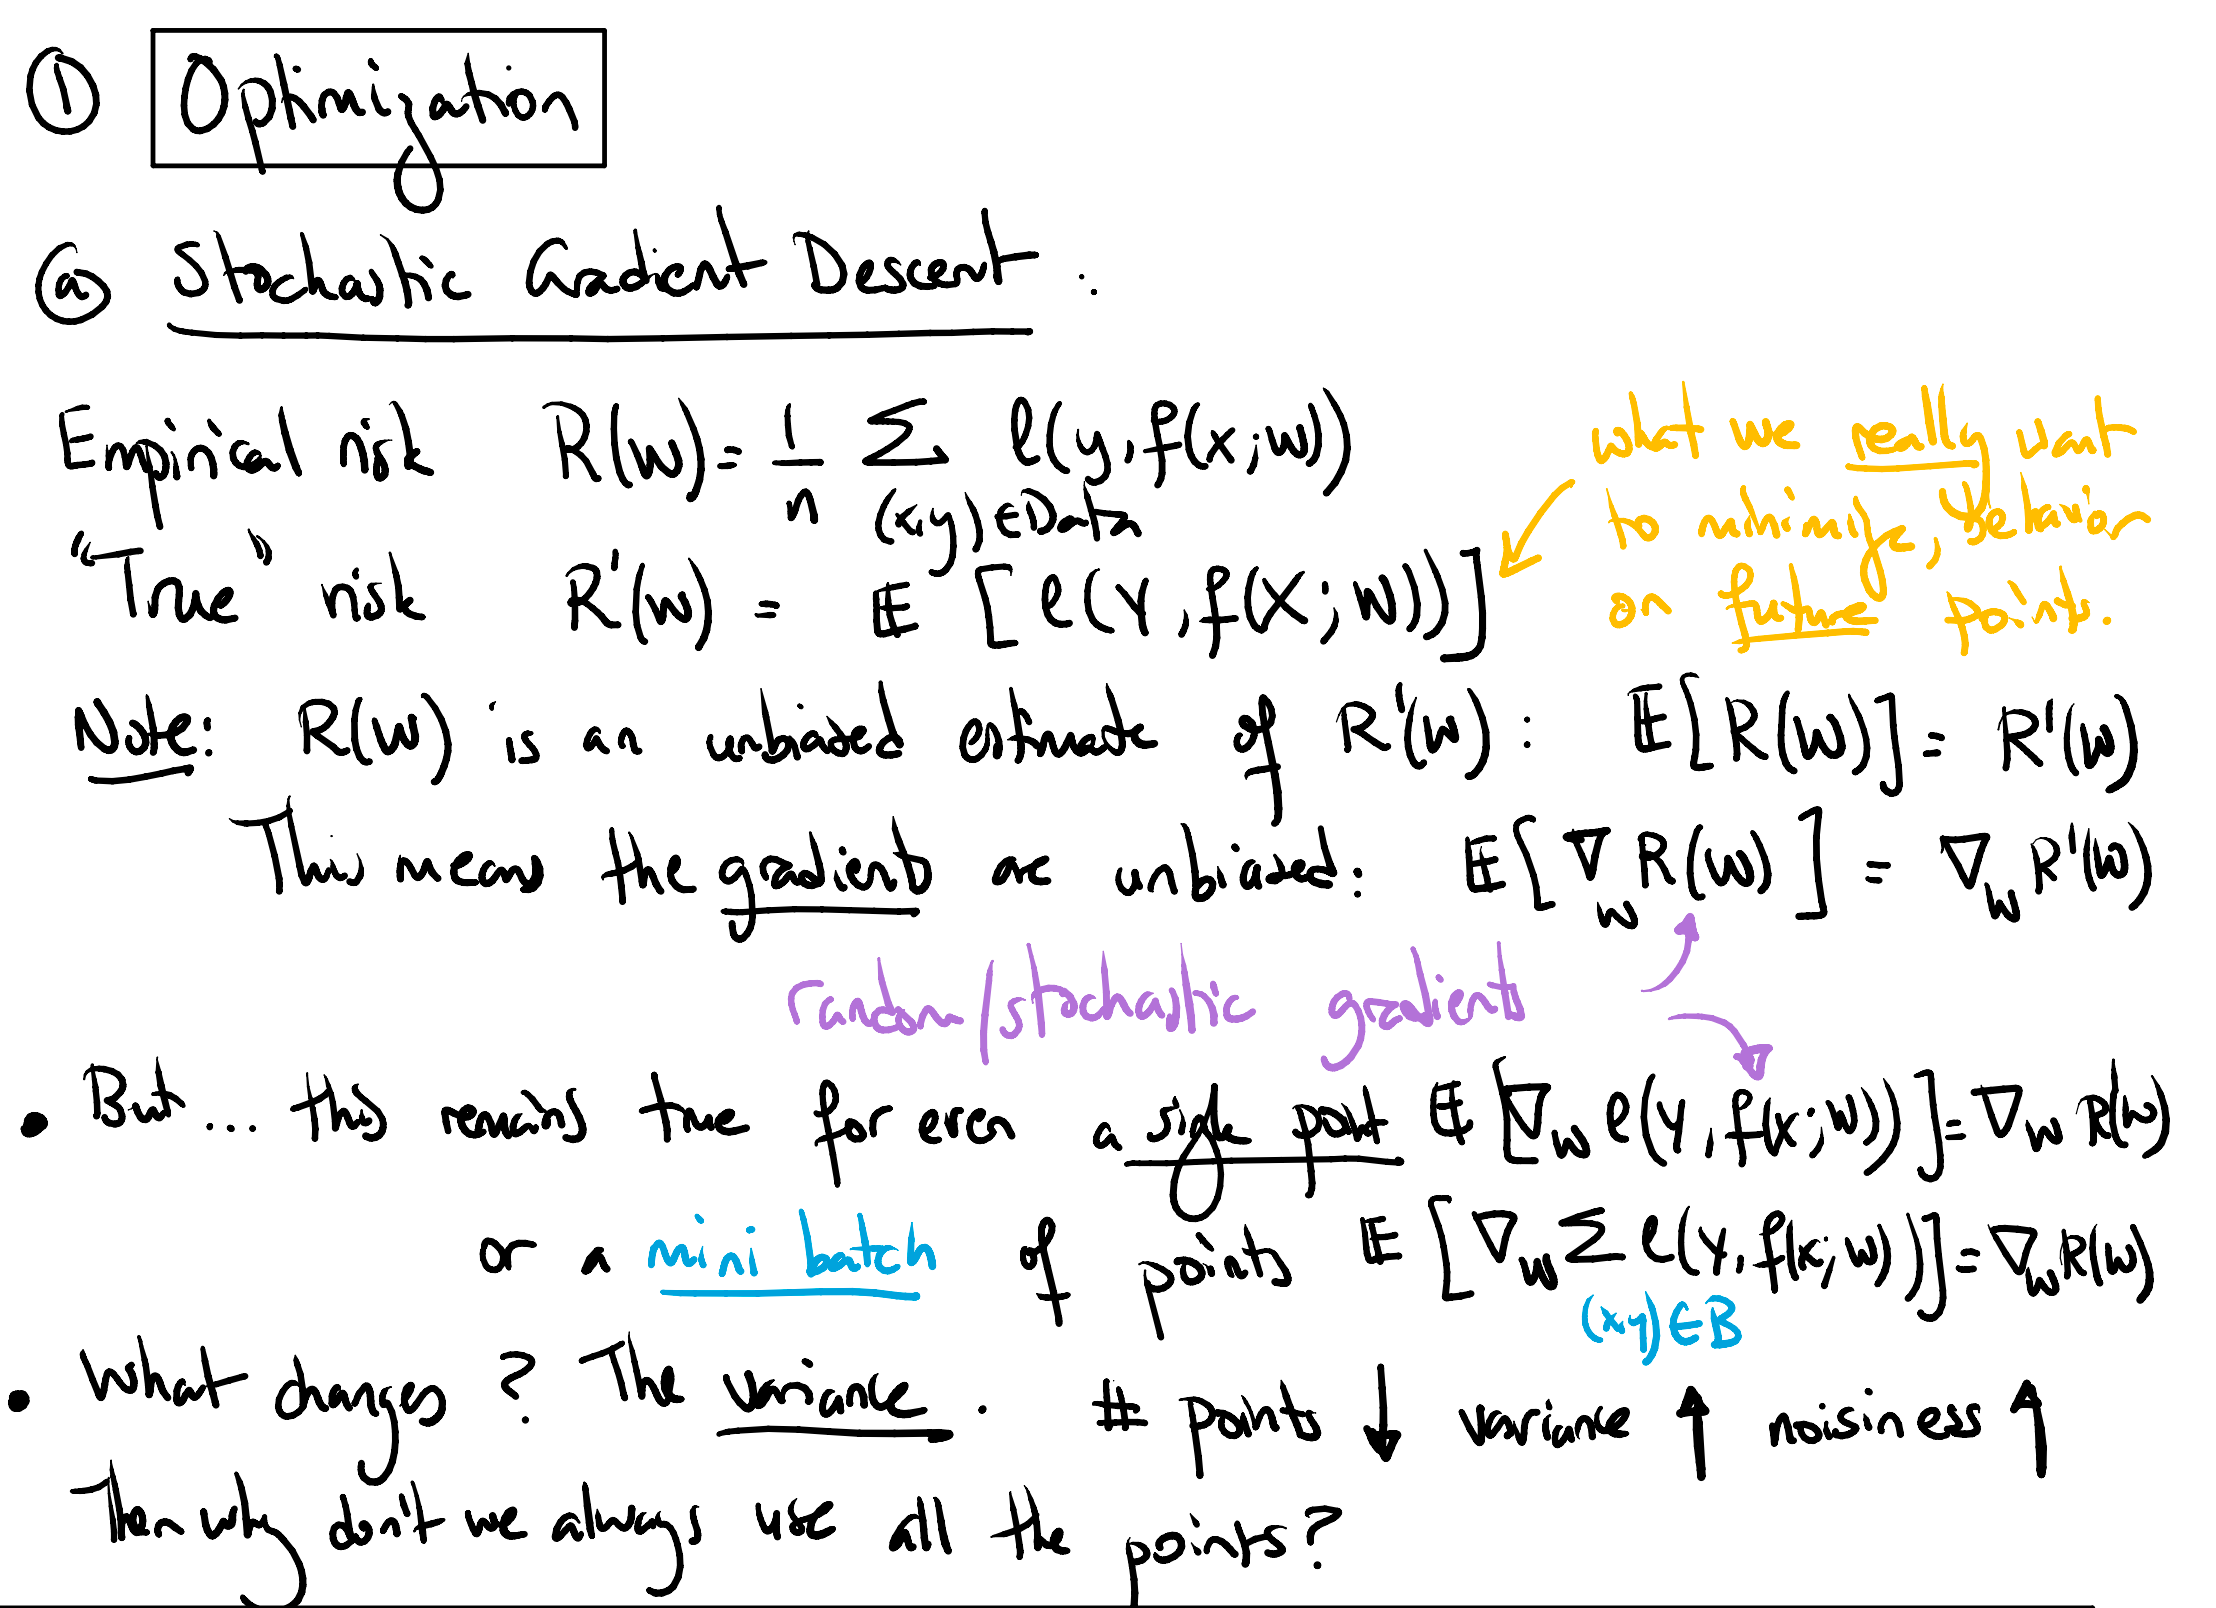 ① Optimization
ⓐ Stochastic Gradient Descent.
Empirical risk R(w) = 1/n Σ ℓ(y, f(x; w))
(x,y) ∈ Data
"True" risk R'(w) = 𝔼 [ℓ(Y, f(X; w))]
what we really want
to minimize, behavior
on future points.
Note: R(w) is an unbiased estimate of R'(w): 𝔼[R(w)] = R'(w)
This means the gradients are unbiased: 𝔼[∇_w R(w)] = ∇_w R'(w)
random/stochastic gradients
• But... this remains true for even a single point 𝔼[∇_w ℓ(Y, f(X; w))] = ∇_w R(w)
or a mini batch of points 𝔼[∇_w Σ ℓ(Y, f(x; w))] = ∇_w R(w)
(x,y) ∈ B
• What changes? The variance. # points ↓ variance ↑ noisiness ↑
Then why don't we always use all the points?